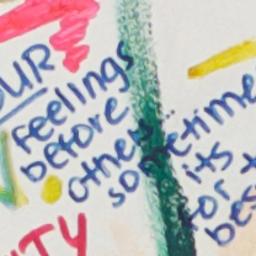 OUR
feelings
before
others...
sometimes
its
for t
best
ITY